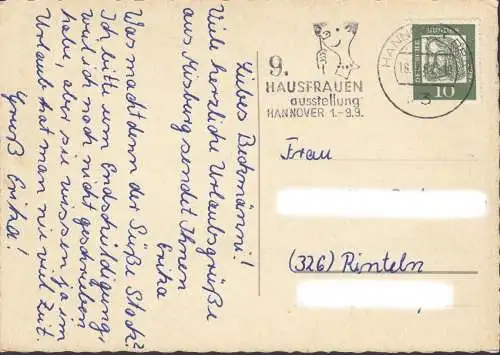 Liebes Beckmänni!
Viele herzliche Urlaubsgrüße
aus Misburg sendet Ihnen
Erika
Was macht denn der Süße Stock?
Ich bitte um Endschuldigung,
weil ich noch nicht geschrieben
habe, aber sie wissen ja im
Urlaub hat man nie viel Zeit.
Gruß Erika!
9.
HAUSFRAUEN
ausstellung
HANNOVER 1.-9.9.
HANN
3
DEUTSCHE BUNDESPOST
10
Frau
(326) Rinteln